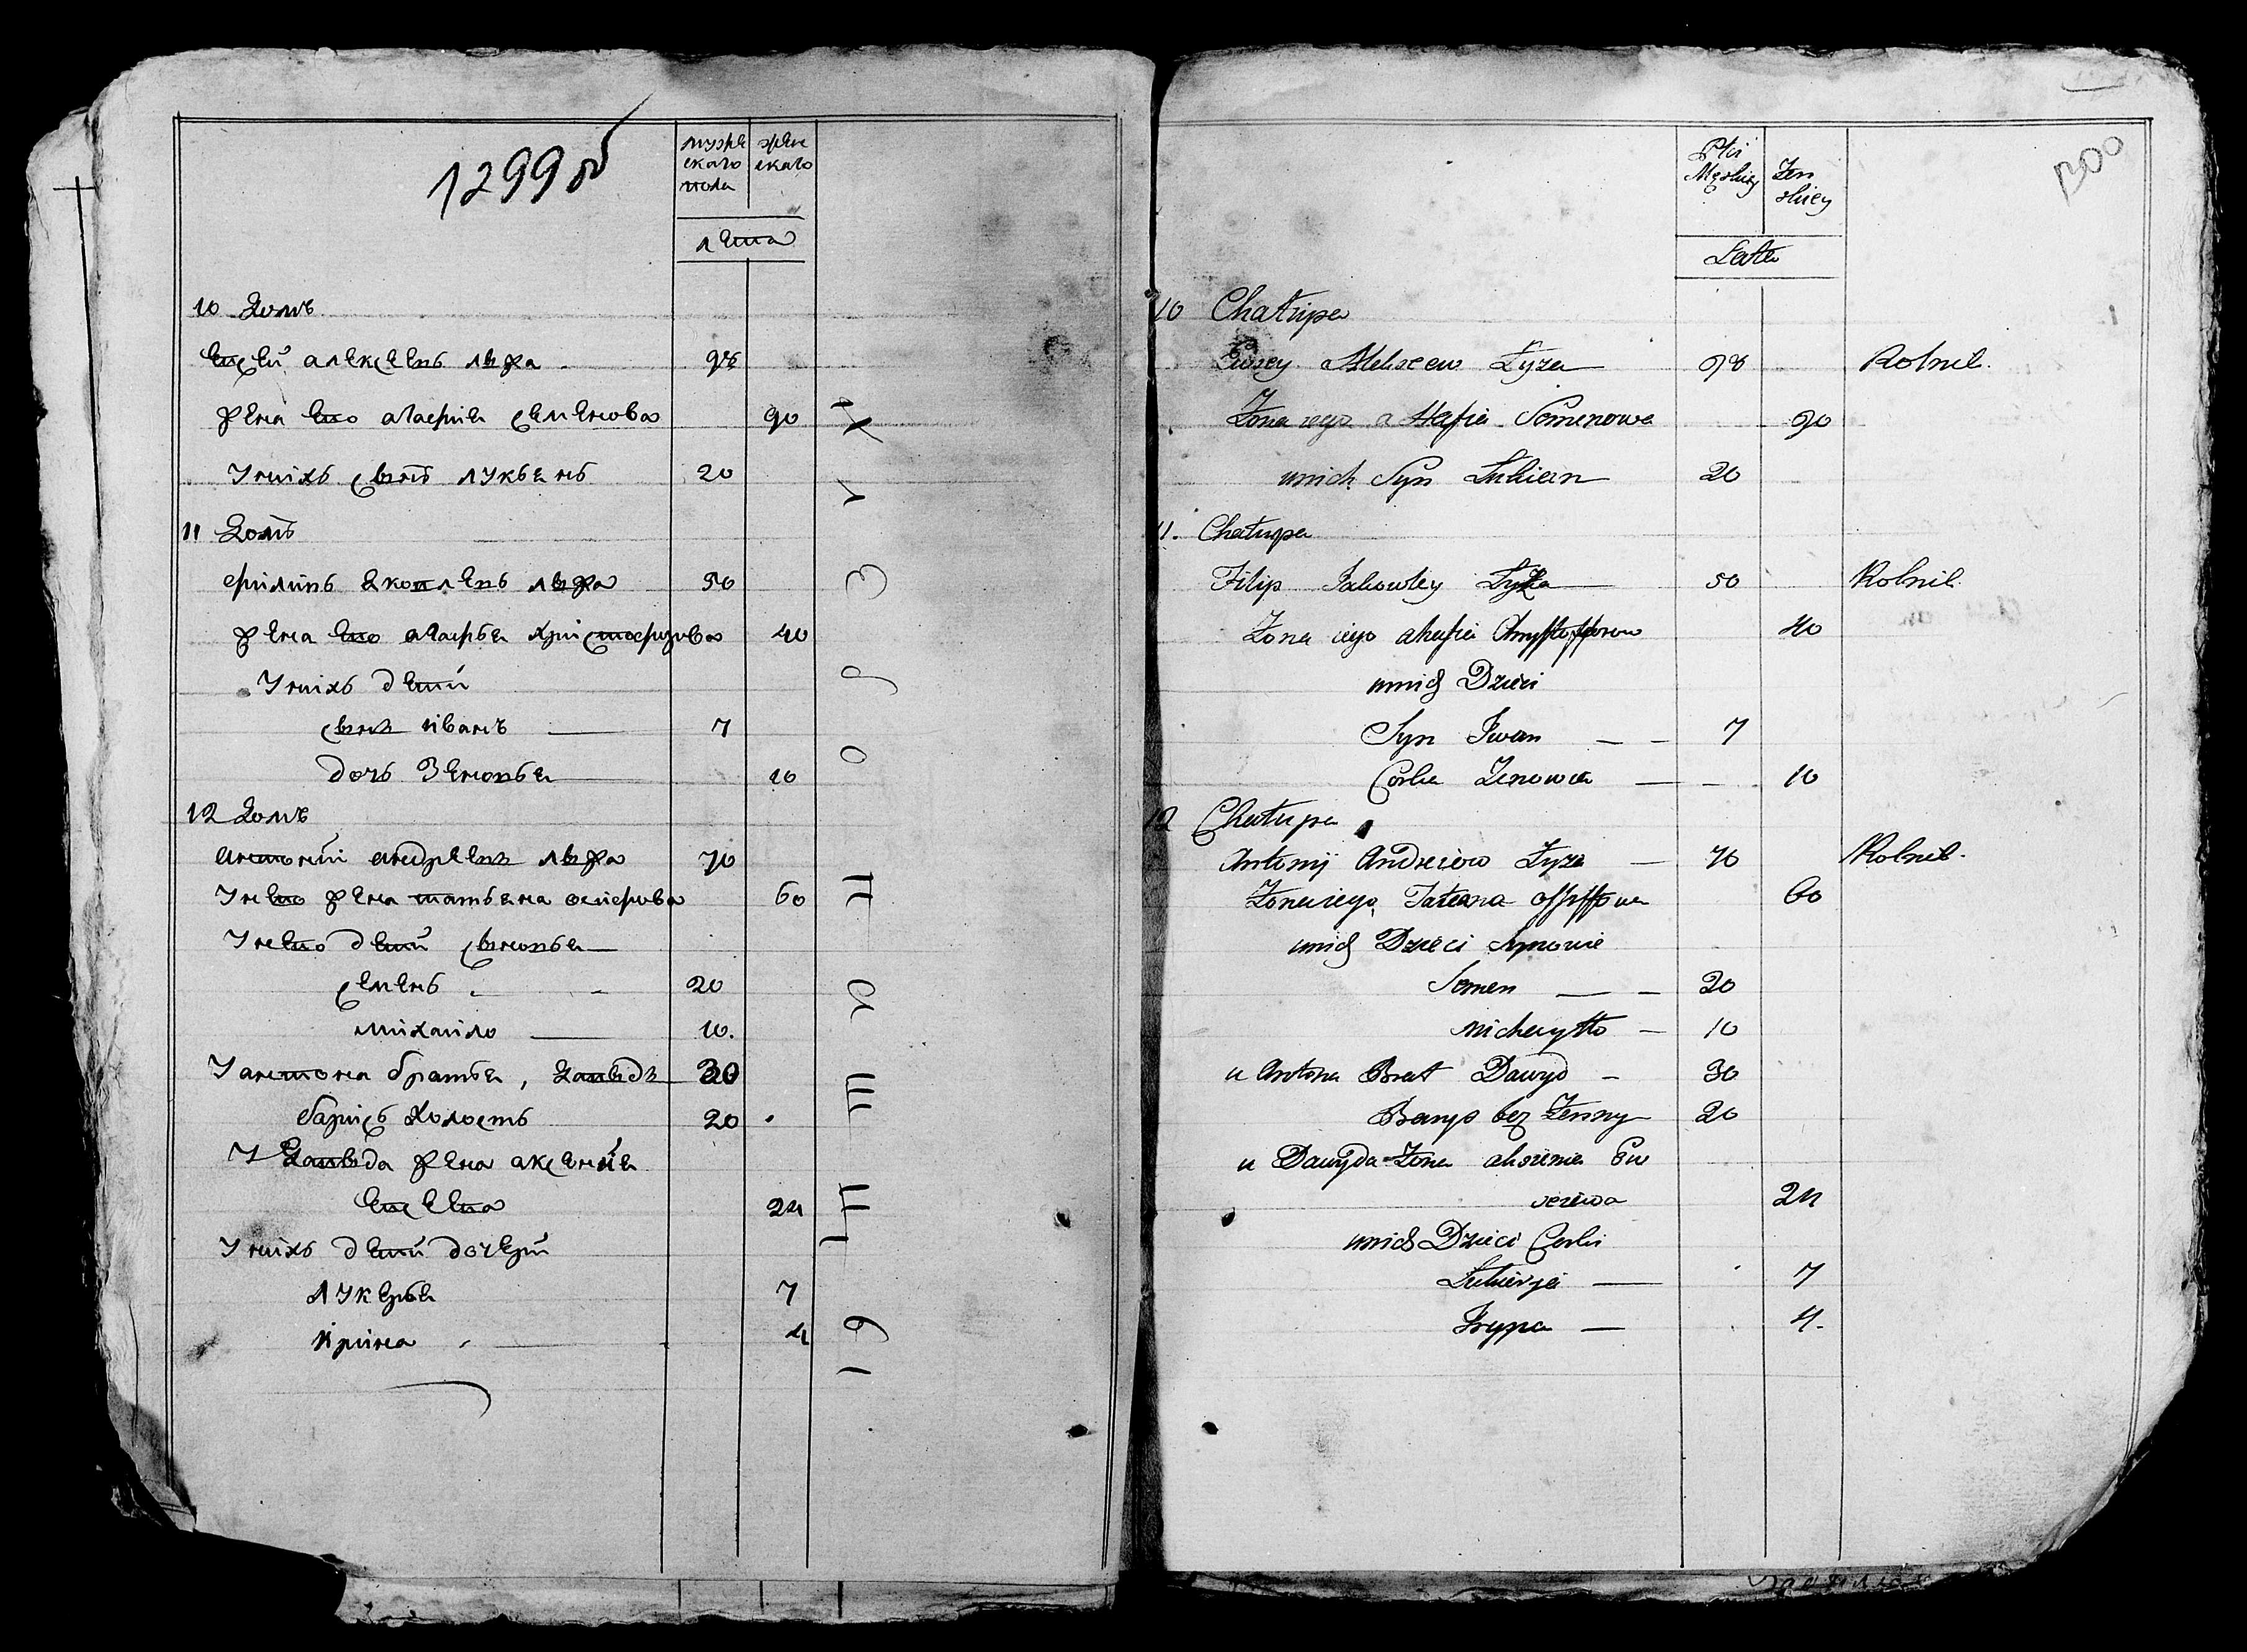 1299 об
мужескаго пола
женскаго
лета
10 Домъ
Евсей алексеевъ лыжа 98
жена ево агафия семенова 90
У нихъ сынъ лукьянъ 20
11 Домъ
филипъ яковлевъ лыжа 50
жена ево агафья христофорова 40
У нихъ дети
сынъ иванъ 7
дочь Зеновья 10
12 Домъ
антоней андреевъ лыжа 70
У нево жена татьяна осифова 60
У нево дети сыновья
семенъ 20
михайло 10.
У антона братья, Давыдъ 30
барисъ холостъ 20
У Давыда жена аксенья
Евсеева 24
У нихъ дети дочери
лукерья 7
ирина 4
1300
Płci Męskiey
Zenskiey
Lata
10 Chałupa
Ewsey Alekseew Lyza 98 Rolnik.
Zona iego a Hafia Semenowa 90
unich Syn Lukian 20
11. Chałupa
Filip Jakowley Lyza 50 Rolnik
Zona iego ahafia Chrysstofforow 40
unich Dzieci
Syn Jwan 7
Corka Zenowia 10
12 Chałupa
Antonij Andreiew Lyza 70 Rolnik.
Zona iego Tateana Ossiffowa 60
unich Dzieci Synowie
Semen 20
Michayłło 10
u Antona Brat Dawyd 30
Barys bez Zenny 20
u Dawyda Zona aksienia Ew
seiewa 24
unich Dzieci Corki
Lukierja 7
Iryna 4.